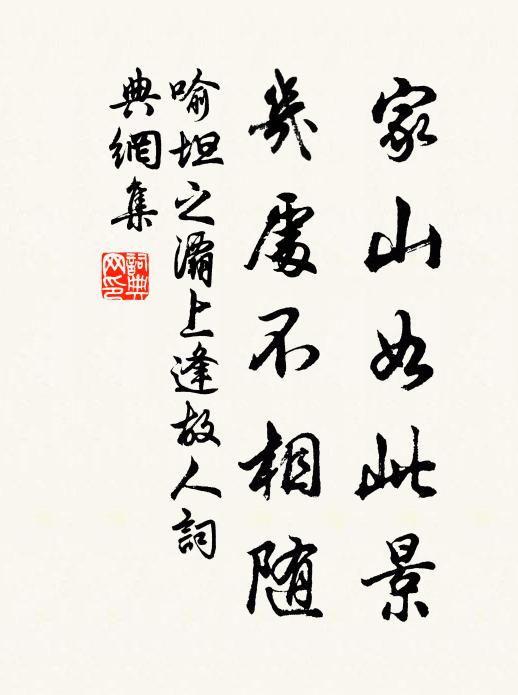 家山如此景
幾處不相随
喻坦之灞上逢故人詞
典網集
詞典網印